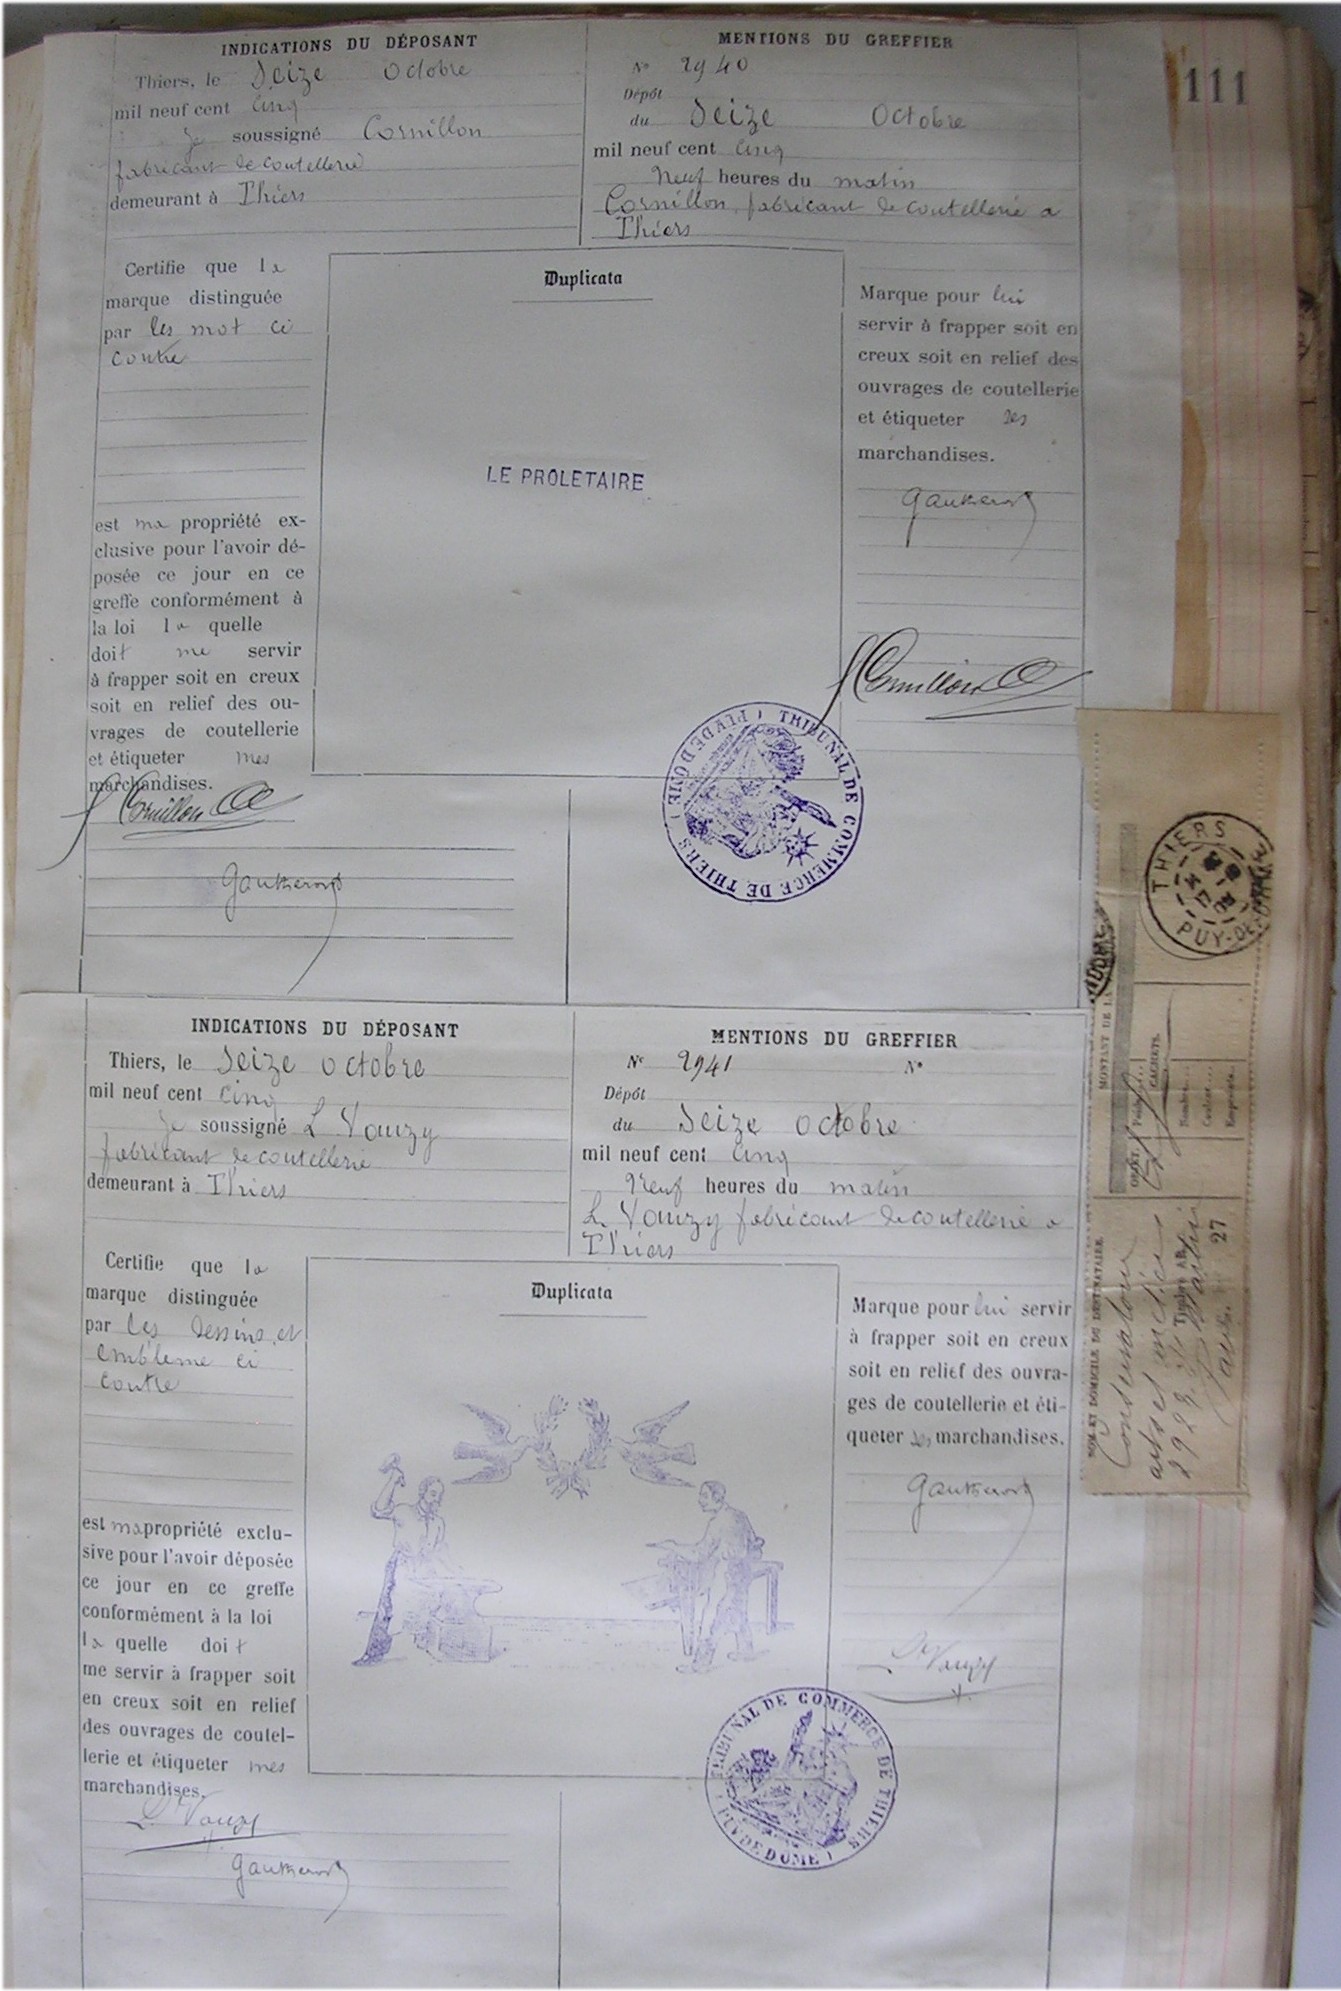 111
INDICATIONS DU DÉPOSANT
Thiers, le Seize Octobre
mil neuf cent cinq
Je soussigné Cornillon
fabricant de coutellerie
demeurant à Thiers
MENTIONS DU GREFFIER
N° 2940
Dépôt
du Seize Octobre
mil neuf cent cinq
Neuf heures du matin
Cornillon, fabricant de coutellerie a
Thiers
Certifie que la
marque distinguée
par les mot ci
contre
est ma propriété ex-
clusive pour l'avoir dé-
posée ce jour en ce
greffe conformément à
la loi la quelle
doit me servir
à frapper soit en creux
soit en relief des ou-
vrages de coutellerie
et étiqueter mes
marchandises.
Cornillon
Gautheront
Duplicata
LE PROLETAIRE
Marque pour lui
servir à frapper soit en
creux soit en relief des
ouvrages de coutellerie
et étiqueter ses
marchandises.
Gautheront
Cornillon
TRIBUNAL DE COMMERCE DE THIERS ( PUY DE DOME )
INDICATIONS DU DÉPOSANT
Thiers, le Seize octobre
mil neuf cent cinq
Je soussigné L Vauzy
fabricant de coutellerie
demeurant à Thiers
MENTIONS DU GREFFIER
N° 2941 N°
Dépôt
du Seize octobre
mil neuf cent cinq
Neuf heures du matin
L. Vauzy fabricant de coutellerie a
Thiers
Certifie que la
marque distinguée
par les dessins et
embleme ci
contre
est ma propriété exclu-
sive pour l'avoir déposée
ce jour en ce greffe
conformément à la loi
la quelle doit
me servir à frapper soit
en creux soit en relief
des ouvrages de coutel-
lerie et étiqueter mes
marchandises.
L. Vauzy
Gautheront
Duplicata
Marque pour lui servir
à frapper soit en creux
soit en relief des ouvra-
ges de coutellerie et éti-
queter ses marchandises.
Gautheront
L. Vauzy
TRIBUNAL DE COMMERCE DE THIERS ( PUY DE DOME )
THIERS
PUY-DE-DOME
MONTANT DE
OBJET.
CACHETS.
Nombre
Couleur
Empreinte
NOM ET DOMICILE DU DESTINATAIRE.
Conservatoire
arts et métiers
292 R St Martin
Paris
27